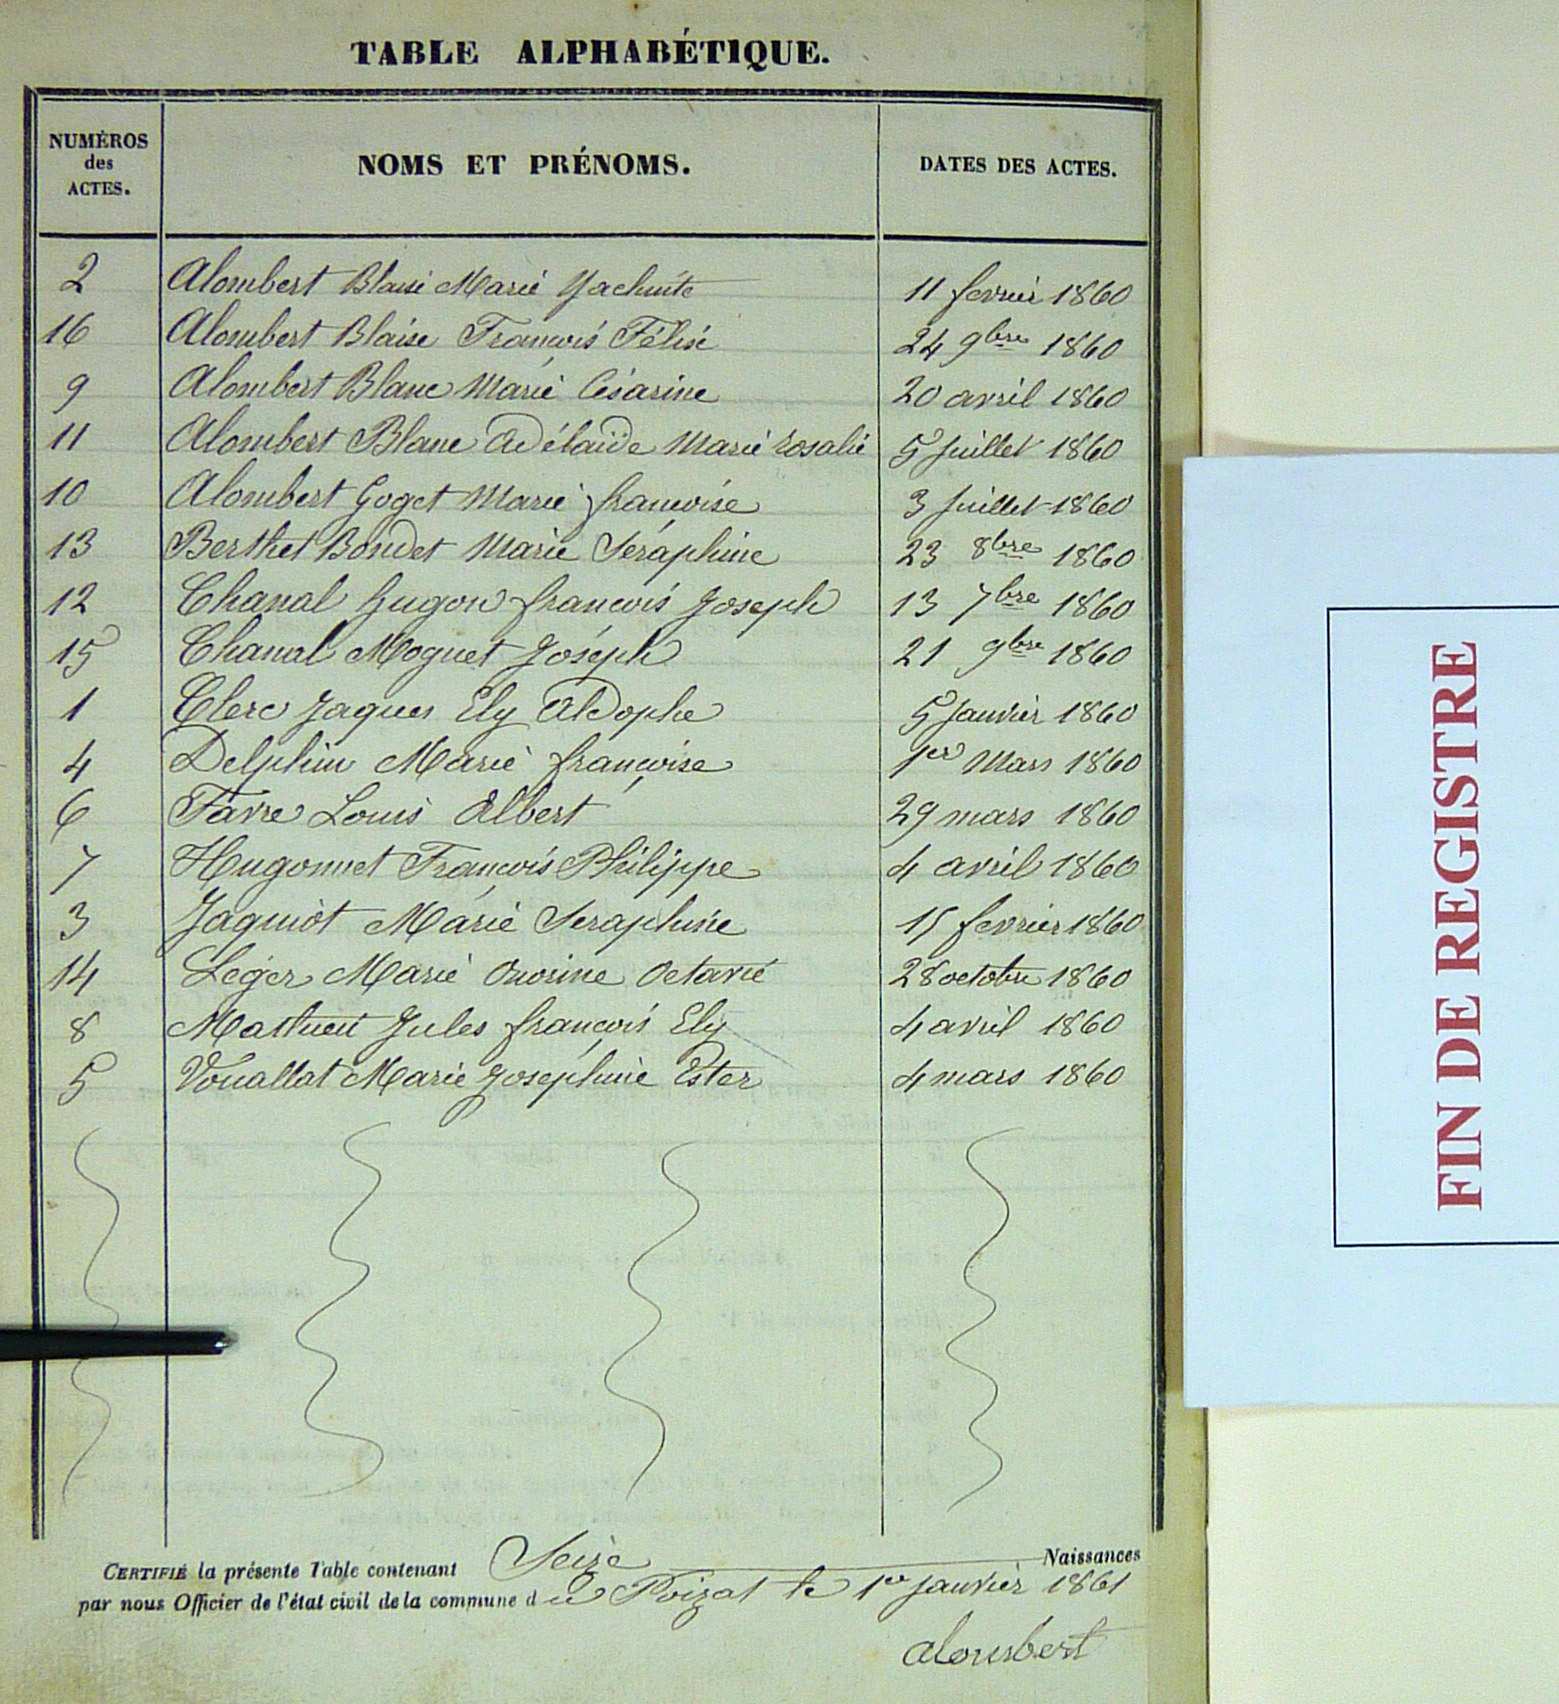 TABLE ALPHABÉTIQUE.
NUMÉROS des ACTES. NOMS ET PRÉNOMS. DATES DES ACTES.
2 Alombert Blaise Marie Yachinte 11 fevrier 1860
16 Alombert Blaise François Félix 24 9bre 1860
9 Alombert Blanc Marie Césarine 20 avril 1860
11 Alombert Blanc Adélaïde Marie rosalie 5 Juillet 1860
10 Alombert Goget Marie françoise 3 Juillet 1860
13 Berthet Bondet Marie Séraphine 23 8bre 1860
12 Chanal hugon françois Joseph 13 7bre 1860
15 Chanal Moguet Joséph 21 9bre 1860
1 Clerc Jaques Ely Aldophe 5 Janvier 1860
4 Delphin Marie françoise 1er Mars 1860
6 Favre Louis Albert 29 mars 1860
7 Hugonnet François Philippe 4 avril 1860
3 Jaquiot Marie Seraphine 15 fevrier 1860
14 Leger Marie Onorine Octavie 28 octobre 1860
8 Mathieu Jules françois Ely 4 avril 1860
5 Vouallat Marie Joséphine Ester 4 mars 1860
CERTIFIÉ la présente Table contenant Seize Naissances
par nous Officier de l'état civil de la commune du Poizat le 1er janvier 1861
alombert
FIN DE REGISTRE